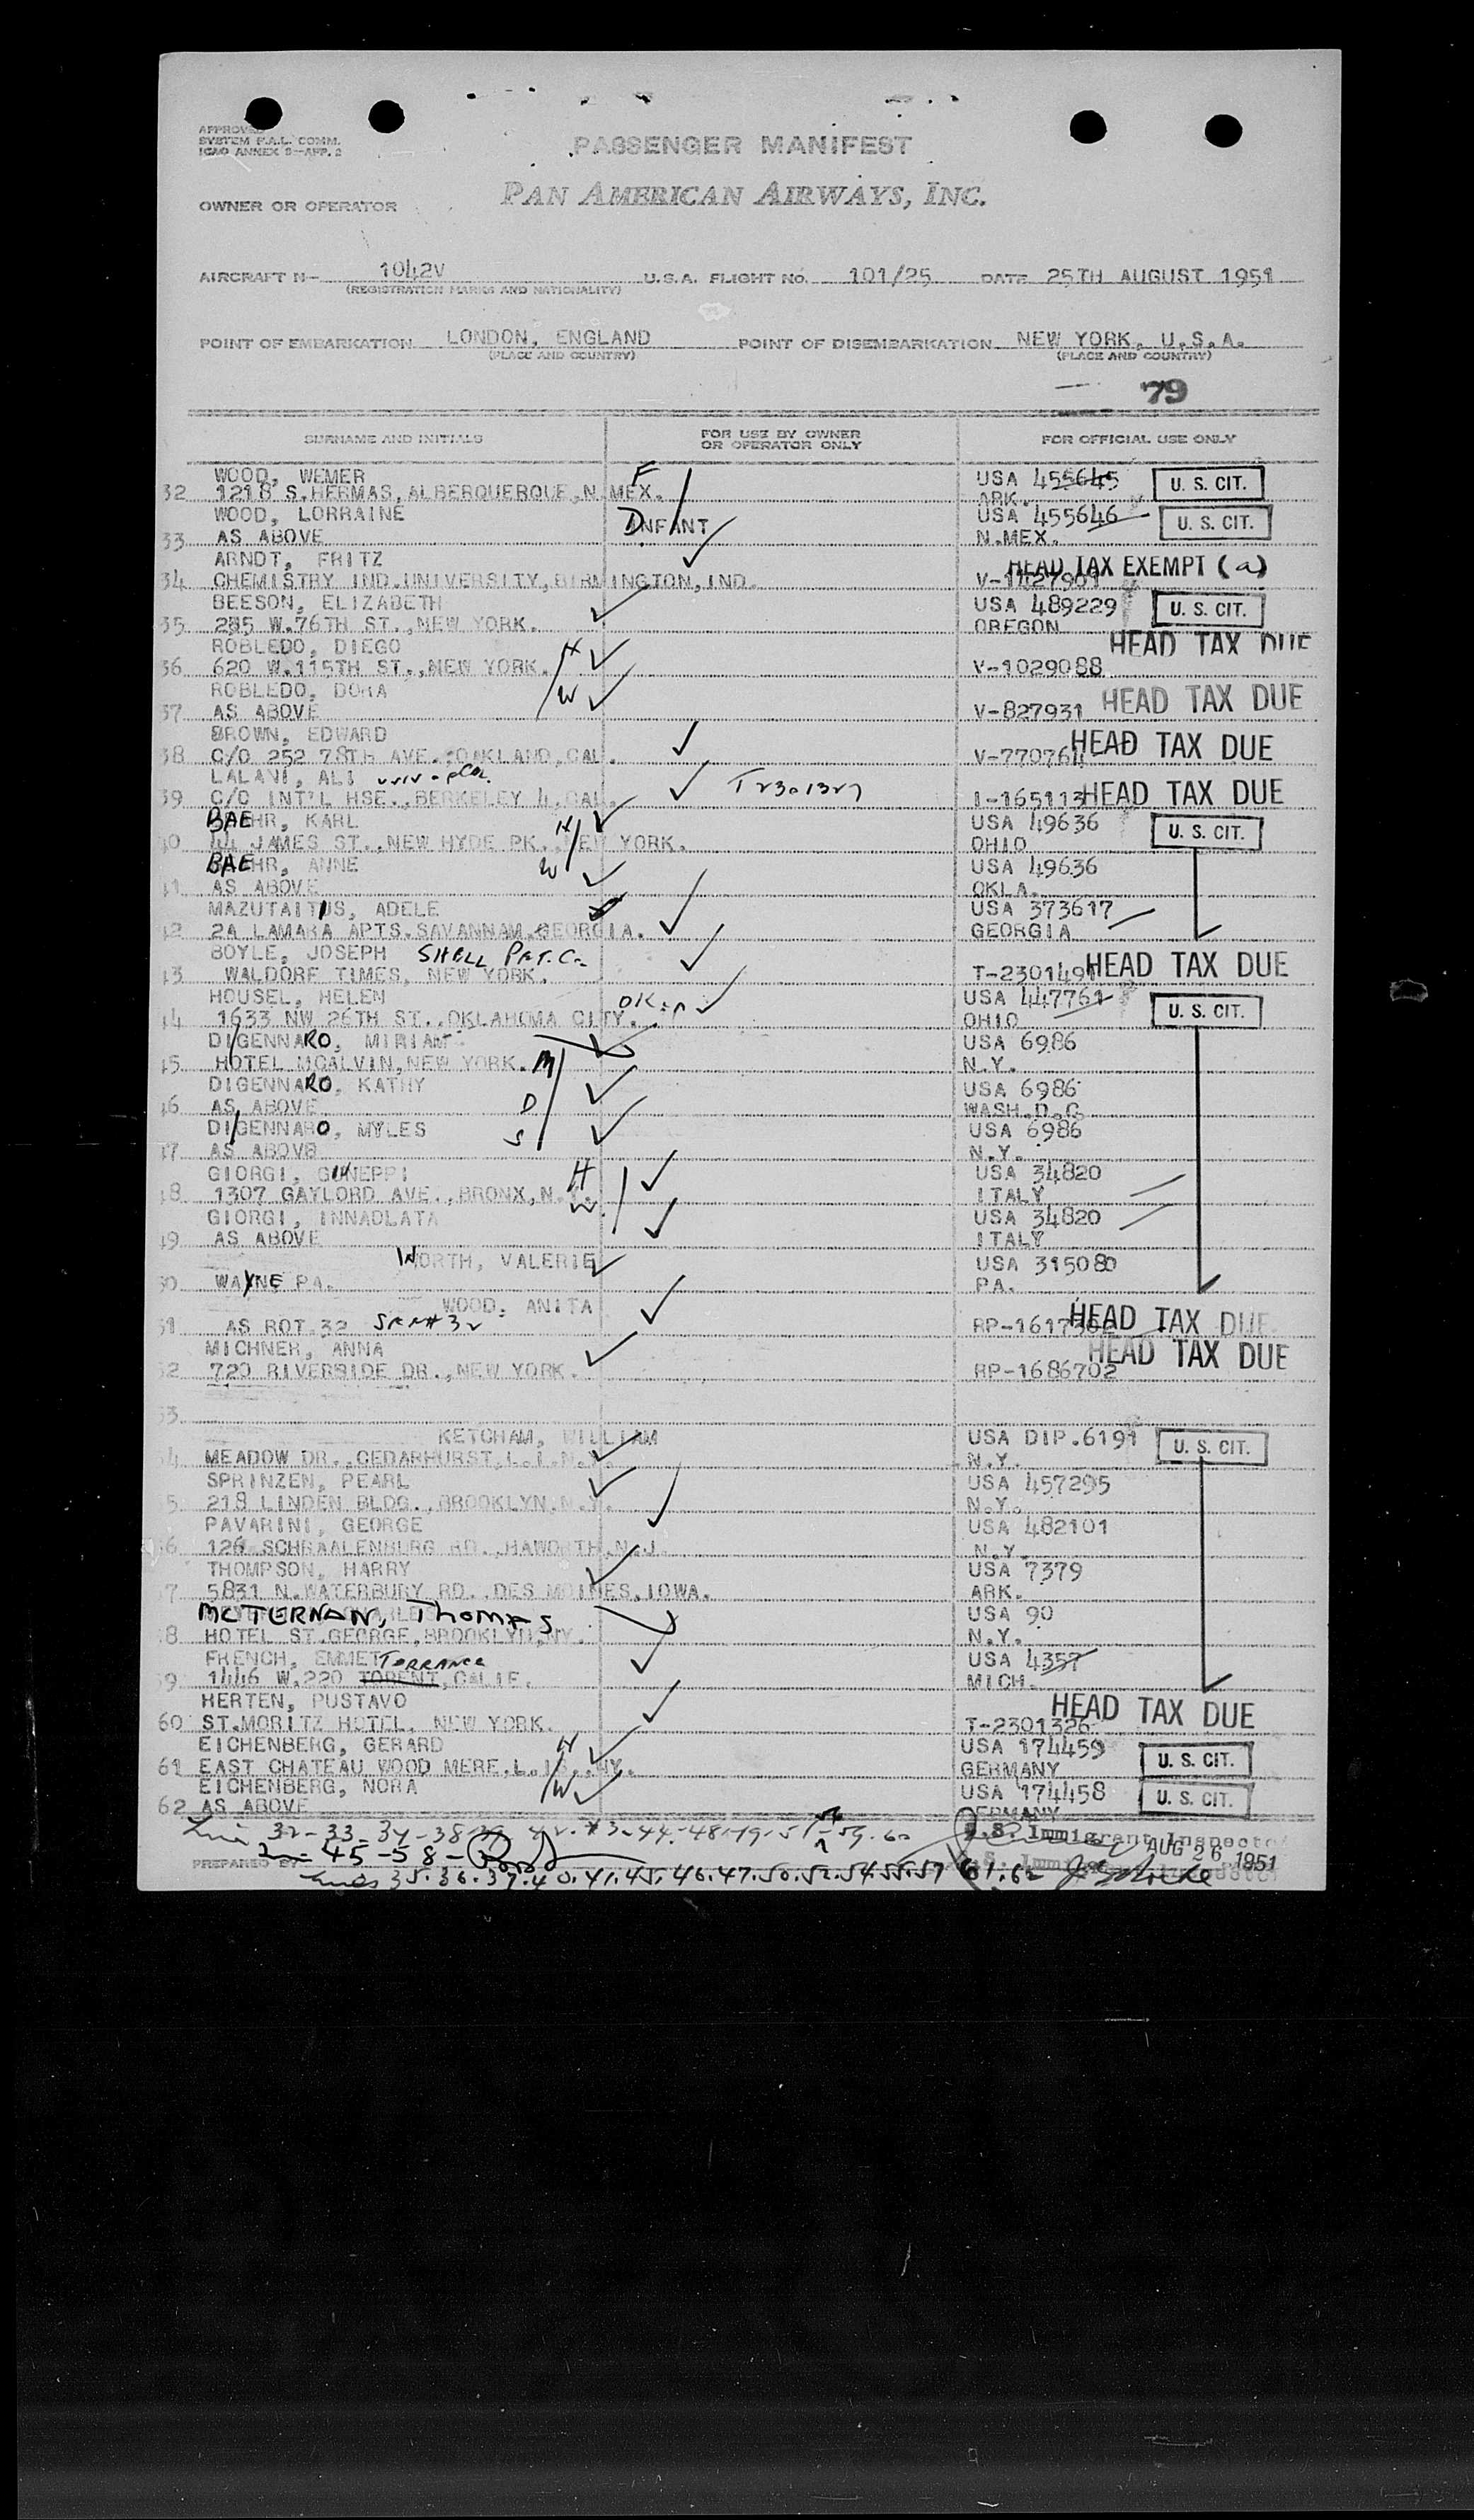 APPROVED
SYSTEM F.A.L. COMM.
ICAO ANNEX 9-APP. 2
PASSENGER MANIFEST
PAN AMERICAN AIRWAYS, INC.
OWNER OR OPERATOR
AIRCRAFT N- 1042V U.S.A. FLIGHT NO. 101/25 DATE 25TH AUGUST 1951
(REGISTRATION MARKS AND NATIONALITY)
POINT OF EMBARKATION LONDON, ENGLAND POINT OF DISEMBARKATION NEW YORK, U.S.A.
(PLACE AND COUNTRY) (PLACE AND COUNTRY)
79
SURNAME AND INITIALS FOR USE BY OWNER OR OPERATOR ONLY FOR OFFICIAL USE ONLY
WOOD, WEMER F USA 455645 U. S. CIT.
32 1218 S.HERMAS,ALBERQUERQUE,N.MEX. ARK.
WOOD, LORRAINE D INFANT USA 455646 U. S. CIT.
33 AS ABOVE N.MEX.
ARNDT, FRITZ HEAD TAX EXEMPT (a)
34 CHEMISTRY IND.UNIVERSITY,BIRMINGTON,IND. V-1427901
BEESON, ELIZABETH USA 489229 U. S. CIT.
35 235 W.76TH ST.,NEW YORK. OREGON
ROBLEDO, DIEGO H HEAD TAX DUE
36 620 W.115TH ST.,NEW YORK. V-1029088
ROBLEDO, DORA W
37 AS ABOVE V-827931 HEAD TAX DUE
BROWN, EDWARD
38 C/O 252 78TH AVE.,OAKLAND,CAL. V-770764 HEAD TAX DUE
LALANI, ALI T2301327
39 C/O INT'L HSE.,BERKELEY 4,CAL. I-165113 HEAD TAX DUE
BAEHR, KARL H USA 49636 U. S. CIT.
40 44 JAMES ST.,NEW HYDE PK. NEW YORK. OHIO
BAEHR, ANNE W USA 49636
41 AS ABOVE OKLA.
MAZUTAITUS, ADELE USA 373617
42 2A LAMARA APTS.SAVANNAM,GEORGIA. GEORGIA
BOYLE, JOSEPH SHELL PET. Co
43 WALDORF TIMES, NEW YORK. T-2301491 HEAD TAX DUE
HOUSEL, HELEN USA 447761 U. S. CIT.
44 1633 NW 26TH ST.,OKLAHOMA CITY. OHIO
DIGENNARO, MIRIAM USA 6986
45 HOTEL MCALVIN,NEW YORK. M N.Y.
DIGENNARO, KATHY USA 6986
46 AS ABOVE D WASH.D.C
DIGENNARO, MYLES S USA 6986
47 AS ABOVE N.Y.
GIORGI, GIUNEPPI H USA 34820
48 1307 GAYLORD AVE.,BRONX,N.Y. W ITALY
GIORGI, INNADLATA USA 34820
49 AS ABOVE ITALY
WORTH, VALERIE USA 315080
50 WAYNE PA. PA.
WOOD, ANITA
51 AS ROT 32 HEAD TAX DUE
MICHNER, ANNA
52 720 RIVERSIDE DR.,NEW YORK. RP-1686702 HEAD TAX DUE
53
KETCHAM, WILLIAM USA DIP.6191 U. S. CIT.
54 MEADOW DR.,CEDARHURST,L.I.N.Y. N.Y.
SPRINZEN, PEARL USA 457295
55 218 LINDEN BLDG.,BROOKLYN,N.Y. N.Y.
PAVARINI, GEORGE USA 482101
56 126 SCHRAALENBURG RD.,HAWORTH,N.J. N.Y.
THOMPSON, HARRY USA 7379
57 5831 N.WATERBURY RD.,DES MOINES,IOWA. ARK.
McTERNAN, Thomas USA 90
58 HOTEL ST.GEORGE,BROOKLYN,NY. N.Y.
FRENCH, EMMET Torrance USA 4357
59 1446 W.220 TORENT,CALIF. MICH.
HERTEN, PUSTAVO HEAD TAX DUE
60 ST.MORITZ HOTEL, NEW YORK. T-2301326
EICHENBERG, GERARD H USA 174459 U. S. CIT.
61 EAST CHATEAU WOOD MERE,L.I.,NY. GERMANY
EICHENBERG, NORA W USA 174458 U. S. CIT.
62 AS ABOVE GERMANY
U.S. Immigrant Inspector
45-58-
PREPARED BY AUG 26 1951
35.36.37.40.41.45.46.47.50.52.54.55.57 61.62